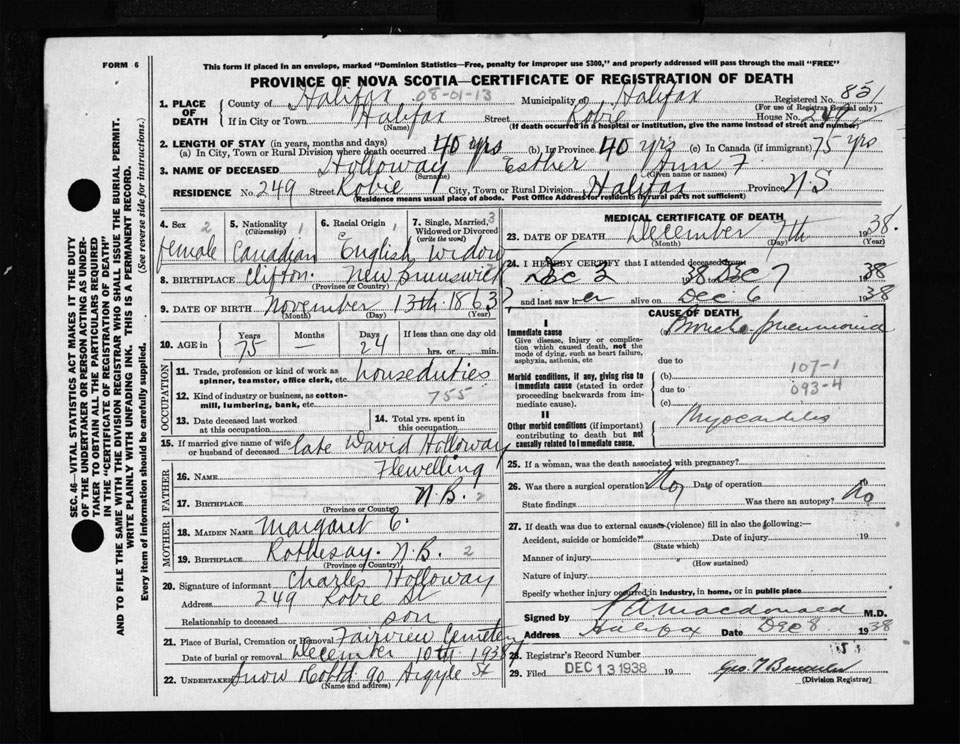 FORM 6
This form if placed in an envelope, marked "Dominion Statistics—Free, penalty for improper use $300," and properly addressed will pass through the mail "FREE"
PROVINCE OF NOVA SCOTIA—CERTIFICATE OF REGISTRATION OF DEATH
1. PLACE OF DEATH
County of Halifax 08-01-13 Municipality of Halifax Registered No. 831
(For use of Registrar General only)
If in City or Town Halifax Street Robie House No. 249
(Name) (If death occurred in a hospital or institution, give the name instead of street and number)
2. LENGTH OF STAY (in years, months and days)
(a) In City, Town or Rural Division where death occurred 40 yrs (b) In Province 40 yrs (c) In Canada (if immigrant) 75 yrs
3. NAME OF DECEASED Holloway Esther Ann F
(Surname) (Given name or names)
RESIDENCE No. 249 Street Robie City, Town or Rural Division Halifax Province N.S
(Residence means usual place of abode. Post Office Address for residents in rural parts not sufficient)
4. Sex 2 female
5. Nationality (Citizenship) 1 Canadian
6. Racial Origin 1 English
7. Single, Married, Widowed or Divorced (write the word) 3 Widow
8. BIRTHPLACE Clifton. New Brunswick
(Province or Country)
9. DATE OF BIRTH November 13th 1863
(Month) (Day) (Year)
10. AGE in Years 75 Months — Days 24 If less than one day old hrs. or min.
OCCUPATION
11. Trade, profession or kind of work as spinner, teamster, office clerk, etc. house duties
12. Kind of industry or business, as cotton-mill, lumbering, bank, etc. 755
13. Date deceased last worked at this occupation
14. Total yrs. spent in this occupation
15. If married give name of wife or husband of deceased late David Holloway
FATHER
16. Name Flewelling
17. Birthplace N.B. 2
(Province or Country)
MOTHER
18. Maiden Name Margaret C.
19. Birthplace Rothesay. N.B. 2
(Province of Country)
20. Signature of informant Charles Holloway
Address 249 Robie St
Relationship to deceased son
21. Place of Burial, Cremation or Removal Fairview Cemetery
Date of burial or removal December 10th 1938
22. Undertaker Snow Co Ltd 90 Argyle St
(Name and address)
MEDICAL CERTIFICATE OF DEATH
23. DATE OF DEATH December 7th 1938.
(Month) (Day) (Year)
24. I HEREBY CERTIFY that I attended deceased from
Dec 2 38 to Dec 7 1938
and last saw her alive on Dec 6 1938
CAUSE OF DEATH
I
Immediate cause
Give disease, injury or complication which caused death, not the mode of dying, such as heart failure, asphyxia, asthenia, etc
(a) Broncho-pneumonia
due to
Morbid conditions, if any, giving rise to immediate cause (stated in order proceeding backwards from immediate cause).
(b) 107-1
due to 093-4
(c)
II
Other morbid conditions (if important) contributing to death but not causally related to immediate cause.
Myocarditis
25. If a woman, was the death associated with pregnancy?
26. Was there a surgical operation? No Date of operation 19
State findings Was there an autopsy? No
27. If death was due to external causes (violence) fill in also the following:—
Accident, suicide or homicide? Date of injury 19
(State which)
Manner of injury
(How sustained)
Nature of injury
Specify whether injury occurred in industry, in home, or in public place
Signed by Macdonald M.D.
Address Halifax Date Dec 8 1938
28. Registrar's Record Number
29. Filed DEC 13 1938 19
(Division Registrar)
SEC. 46—VITAL STATISTICS ACT MAKES IT THE DUTY
OF THE UNDERTAKER OR PERSON ACTING AS UNDER-
TAKER TO OBTAIN ALL THE PARTICULARS REQUIRED
IN THE "CERTIFICATE OF REGISTRATION OF DEATH"
AND TO FILE THE SAME WITH THE DIVISION REGISTRAR WHO SHALL ISSUE THE BURIAL PERMIT.
WRITE PLAINLY WITH UNFADING INK. THIS IS A PERMANENT RECORD.
Every item of information should be carefully supplied. (See reverse side for instructions.)